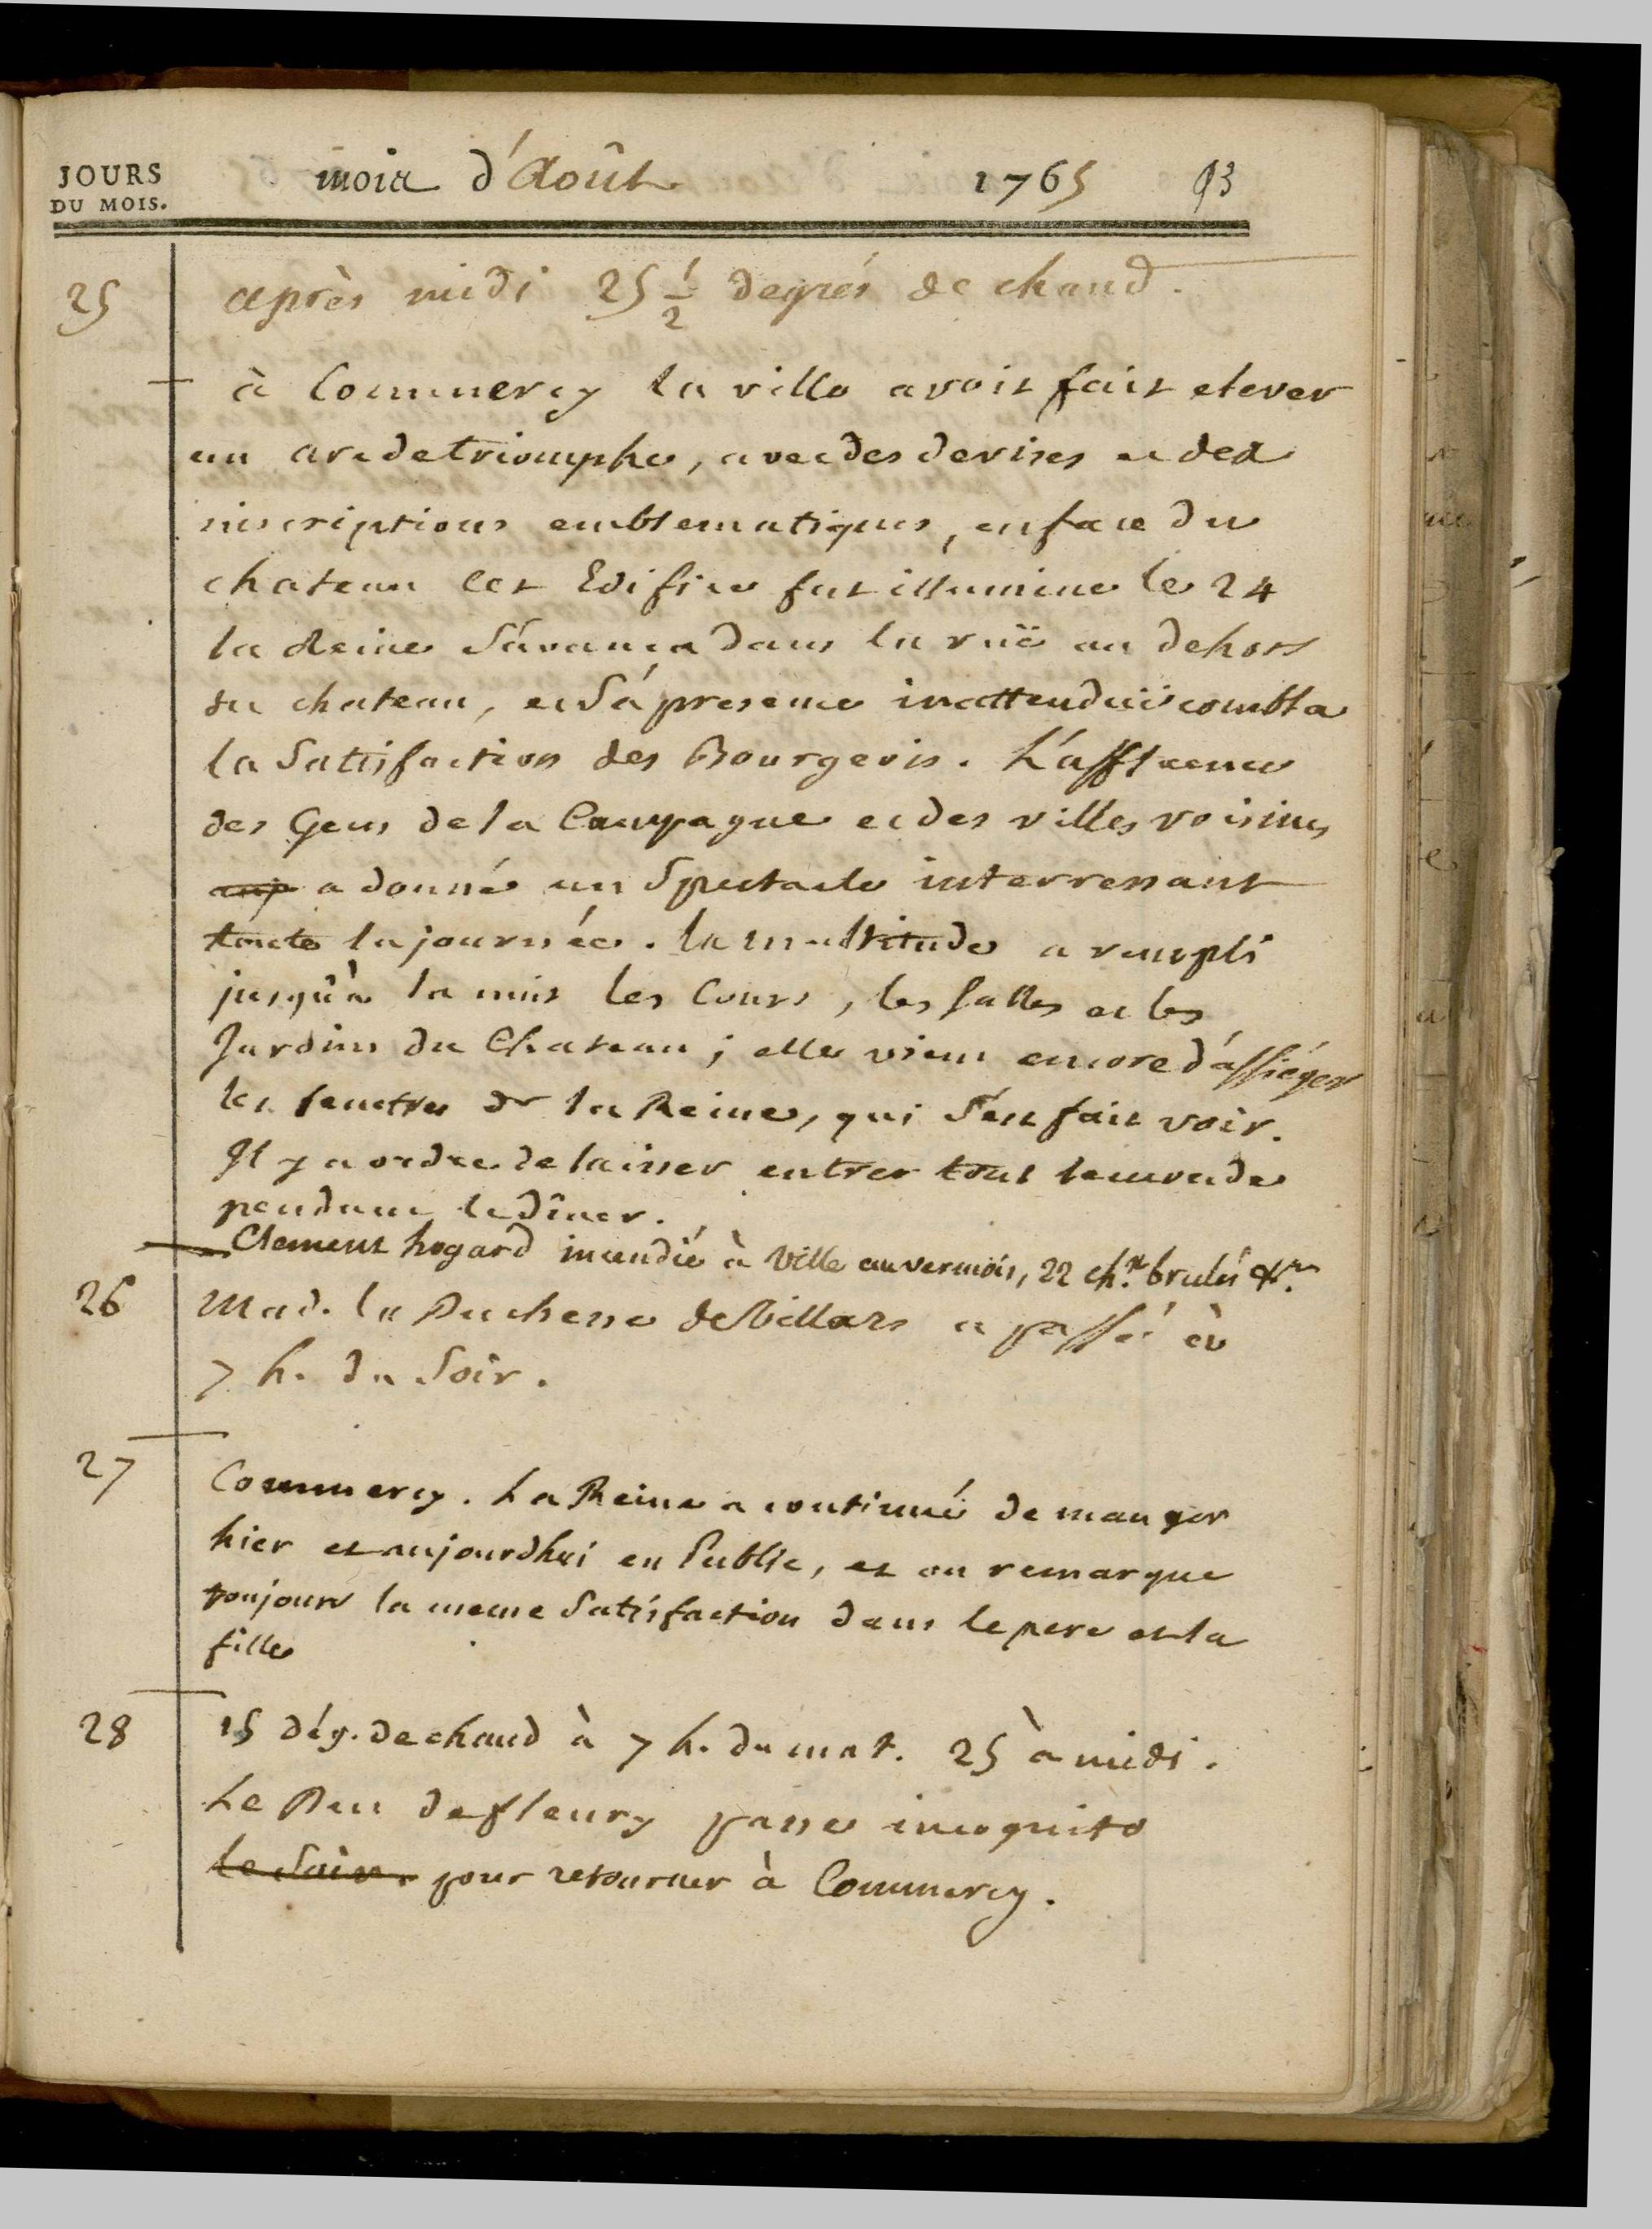 JOURS
DU MOIS.
mois d'Août 1765 93
25 après midi 25 1/2 degrés de chaud.
à Commercy la ville avoit fait elever
un arc de triomphe, avec des devises et des
inscriptions emblematiques, en face du
chateau cet Edifice fut illuminé le 24
la Reine s'avança dans la ruë au dehors
du chateau, et sa presence inattenduë combla
la satisfaction des Bourgeois. L'affluence
des Gens de la Campagne et des villes voisines
a donné un spectacle interressant
toute la journée. la multitude a rempli
jusqu'à la nuit les Cours, les salles et les
Jardins du Chateau; elle vient encore d'assiéger
les fenetres de la Reine, qui s'est fait voir.
Il y a ordre de laisser entrer tout le monde
pendant le dîner.
Clement hogard incendié à Ville en vermois, 22 ch.rs brulés &c.
26 Mad. la Duchesse de Villars a passé à
7 h. du soir.
27 Commercy. La Reine a continué de manger
hier et aujourdhui en Public, et on remarque
toujours la meme satisfaction dans le pere et la
fille
28 15 dég. de chaud à 7 h. du mat. 25 à midi.
Le Duc de fleury passe incognito
le soir. pour retourner à Commercy.